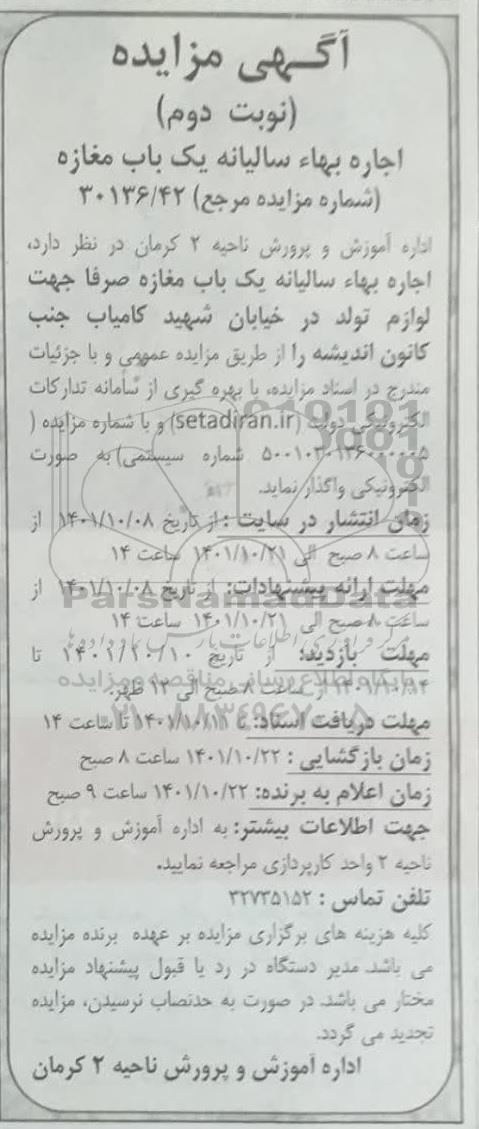 آگهی مزایده
(نوبت دوم)
اجاره بهاء سالیانه یک باب مغازه
(شماره مزایده مرجع) ۳۰۱۳۶/۴۲
اداره آموزش و پرورش ناحیه ۲ کرمان در نظر دارد،
اجاره بهاء سالیانه یک باب مغازه صرفا جهت
لوازم تولد در خیابان شهید کامیاب جنب
کانون اندیشه را از طریق مزایده عمومی و با جزئیات
مندرج در اسناد مزایده، با بهره گیری از سامانه تدارکات
الکترونیکی دولت (setadiran.ir) و با شماره مزایده (
شماره سیستمی) به صورت
الکترونیکی واگذار نماید.
زمان انتشار در سایت : از تاریخ ۱۴۰۱/۱۰/۰۸ از
ساعت ۸ صبح الی ۱۴۰۱/۱۰/۲۱ ساعت ۱۴
مهلت ارائه پیشنهادات: از تاریخ ۱۴۰۱/۱۰/۰۸ از
ساعت ۸ صبح الی ۱۴۰۱/۱۰/۲۱ ساعت ۱۴
ParsNamadData
مهلت بازدید: از تاریخ ۱۴۰۱/۱۰/۱۰ تا
از ساعت ۸ صبح الی ۱۲ ظهر.
پایگاه اطلاع رسانی مناقصه و مزایده
مهلت دریافت اسناد: تا ساعت ۱۴
زمان بازگشایی : ۱۴۰۱/۱۰/۲۲ ساعت ۸ صبح
زمان اعلام به برنده: ۱۴۰۱/۱۰/۲۲ ساعت ۹ صبح
جهت اطلاعات بیشتر: به اداره آموزش و پرورش
ناحیه ۲ واحد کارپردازی مراجعه نمایید.
تلفن تماس : ۳۲۷۳۵۱۵۲
کلیه هزینه های برگزاری مزایده بر عهده برنده مزایده
می باشد. مدیر دستگاه در رد یا قبول پیشنهاد مزایده
مختار می باشد. در صورت به حدنصاب نرسیدن، مزایده
تجدید می گردد.
اداره آموزش و پرورش ناحیه ۲ کرمان